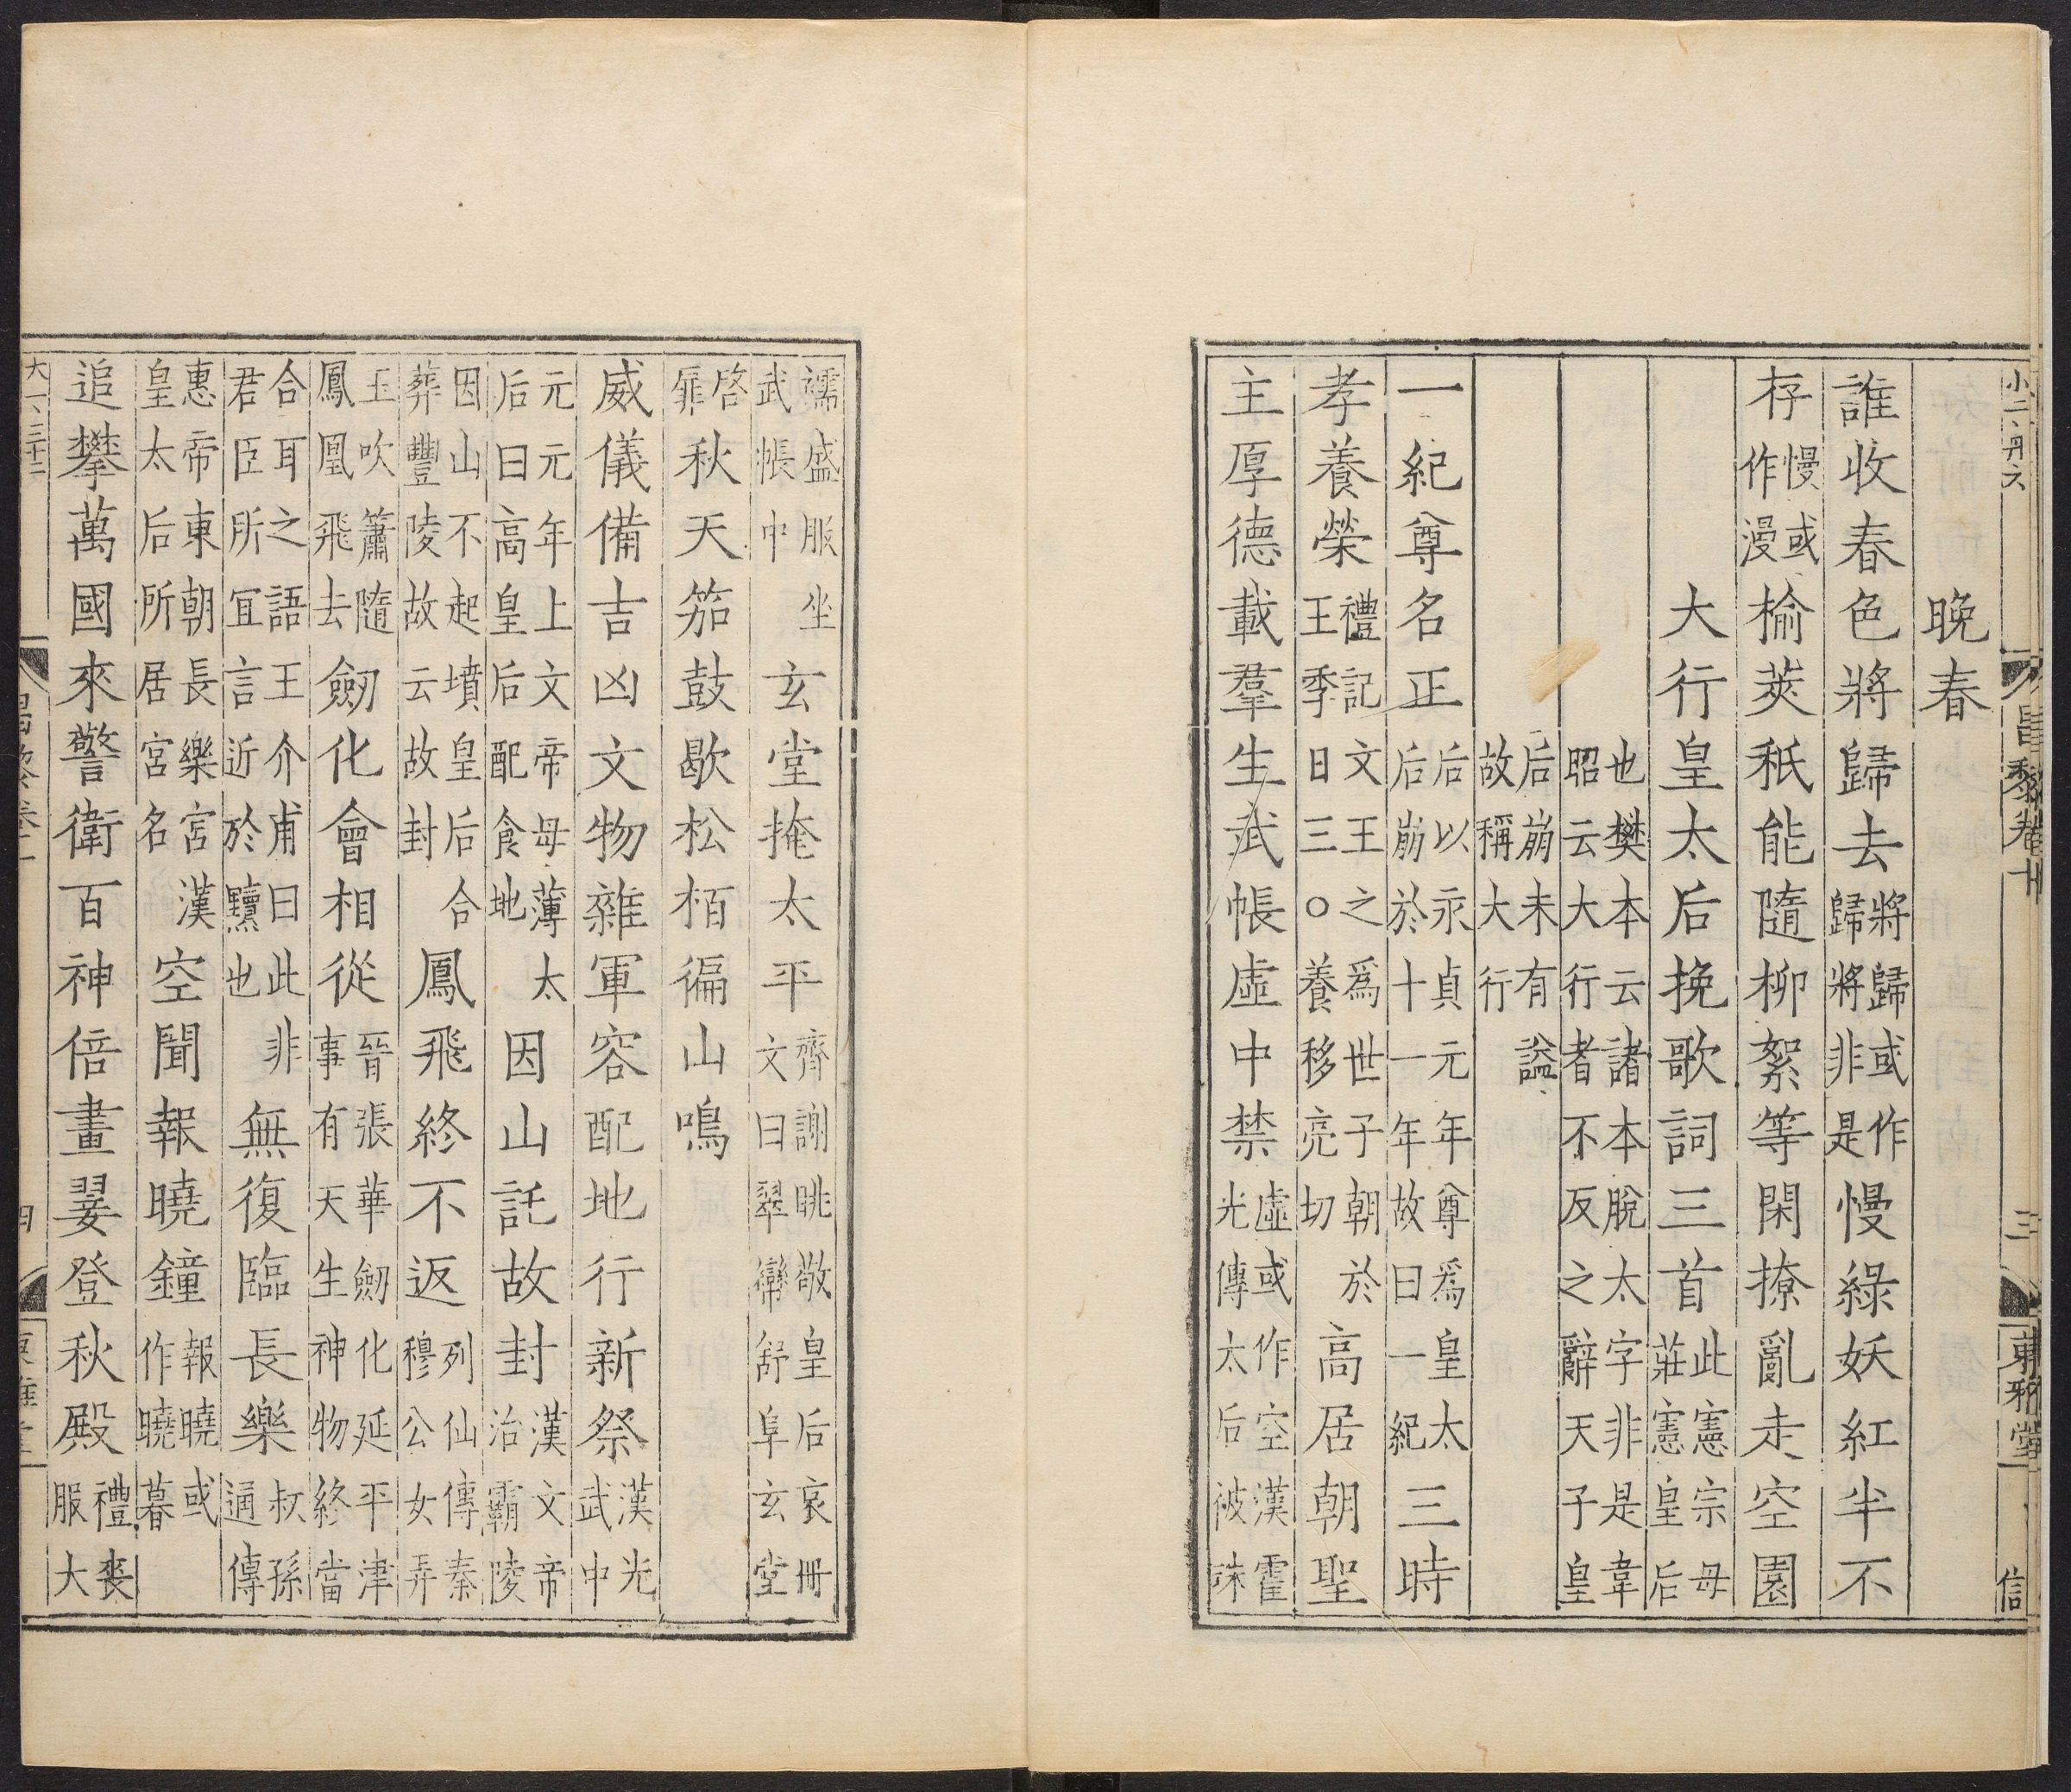 小二、丹六
昌黎卷十
三
東雅堂
信
晚春
誰收春色將歸去將歸或作歸將非是慢綠妖紅半不
存慢或作漫榆莢秖能隨柳絮等閑撩亂走空園
大行皇太后挽歌詞三首此憲宗母莊憲皇后
也樊本云諸本脫太字非是韋昭云大行者不反之辭天子皇
后崩未有謚故稱大行
一紀尊名正后以永貞元年尊爲皇太后崩於十一年故曰一紀三時
孝養榮禮記文王之爲世子朝於王季日三○養移亮切高居朝聖
主厚德載羣生武帳虛中禁虛或作空漢霍光傳太后被誅
襦盛服坐武帳中玄堂掩太平齊謝眺敬皇后哀冊文曰翠帟舒阜玄堂
啓扉秋天笳鼓歇松栢徧山鳴
威儀備吉凶文物雜軍容配地行新祭漢光武中
元元年上文帝母薄太后曰高皇后配食地因山託故封漢文帝治霸陵
因山不起墳皇后合葬豐陵故云故封鳳飛終不返列仙傳秦穆公女弄
玉吹簫隨鳳凰飛去劒化會相從晉張華劒化延平津事有天生神物終當
合耳之語王介甫曰此非君臣所宜言近於黷也無復臨長樂叔孫通傳
惠帝東朝長樂宮漢皇太后所居宮名空聞報曉鐘報曉或作曉暮
追攀萬國來警衛百神倍畫翣登秋殿禮喪服大
大一、三十二
四